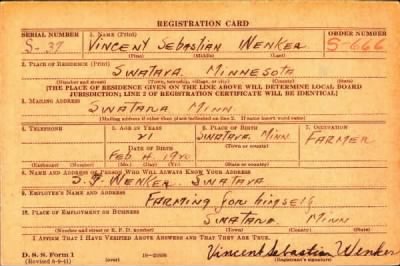 REGISTRATION CARD
SERIAL NUMBER 1. NAME (Print) ORDER NUMBER
S-37 VINCENT SEBASTIAN WENKER S-666
(First) (Middle) (Last)
2. PLACE OF RESIDENCE (Print)
SWATARA MINNESOTA
(Number and street) (Town, township, village, or city) (County) (State)
[THE PLACE OF RESIDENCE GIVEN ON THE LINE ABOVE WILL DETERMINE LOCAL BOARD
JURISDICTION; LINE 2 OF REGISTRATION CERTIFICATE WILL BE IDENTICAL]
3. MAILING ADDRESS
SWATARA MINN.
[Mailing address if other than place indicated on line 2. If same insert word same]
4. TELEPHONE 5. AGE IN YEARS 6. PLACE OF BIRTH 7. OCCUPATION
21 SWATARA MINN FARMER
DATE OF BIRTH (Town or county)
FEB 4 1920
(Exchange) (Number) (Mo.) (Day) (Yr.) (State or country)
8. NAME AND ADDRESS OF PERSON WHO WILL ALWAYS KNOW YOUR ADDRESS
WENKER SWATARA
9. EMPLOYER'S NAME AND ADDRESS
FARMING for himself
10. PLACE OF EMPLOYMENT OR BUSINESS
SWATARA MINN
(Number and street or R. F. D. number) (Town) (County) (State)
I AFFIRM THAT I HAVE VERIFIED ABOVE ANSWERS AND THAT THEY ARE TRUE.
D. S. S. Form 1
(Revised 6-9-41) Vincent Sebastian Wenker